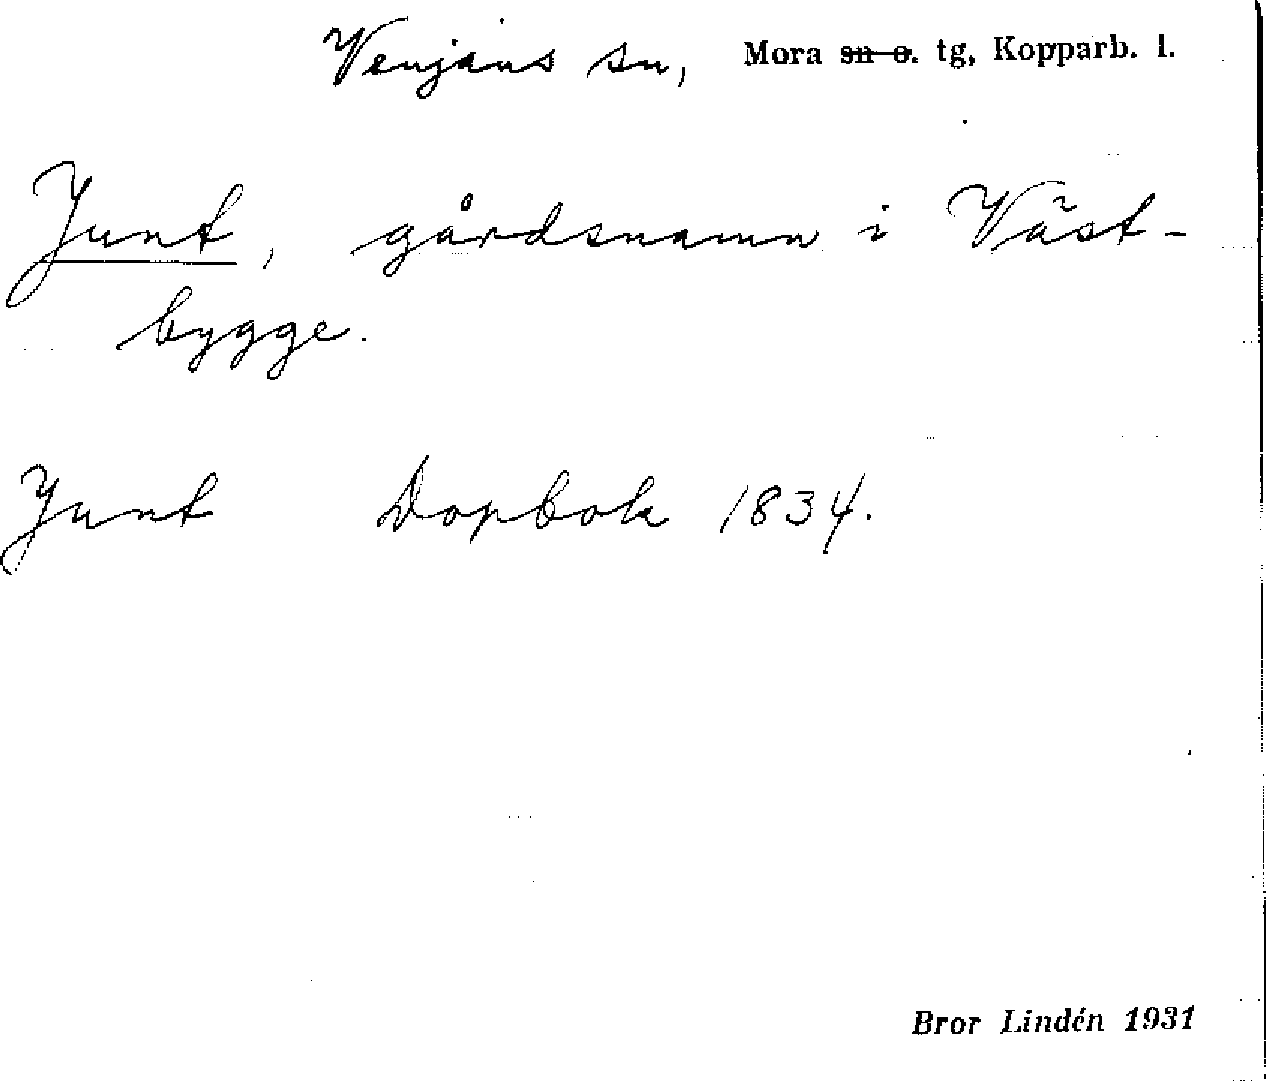 Venjans sn, Mora sn o. tg, Kopparb. l.
Junt, gårdsnamn i Väst-
bygge.
Junt Dopbok 1834.
Bror Lindén 1931